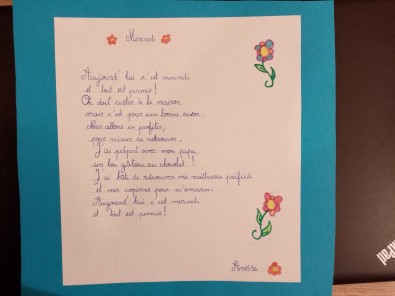 Mercredi
Aujourd'hui c'est mercredi
et tout est permis !
On doit rester à la maison
mais c'est pour une bonne raison.
Nous allons en profiter,
pour mieux se retrouver.
J'ai préparé avec mon papa,
un bon gâteau au chocolat !
J'ai hâte de retrouver ma maîtresse préférée
et mes copines pour m'amuser.
Aujourd'hui c'est mercredi
et tout est permis !
Anissa